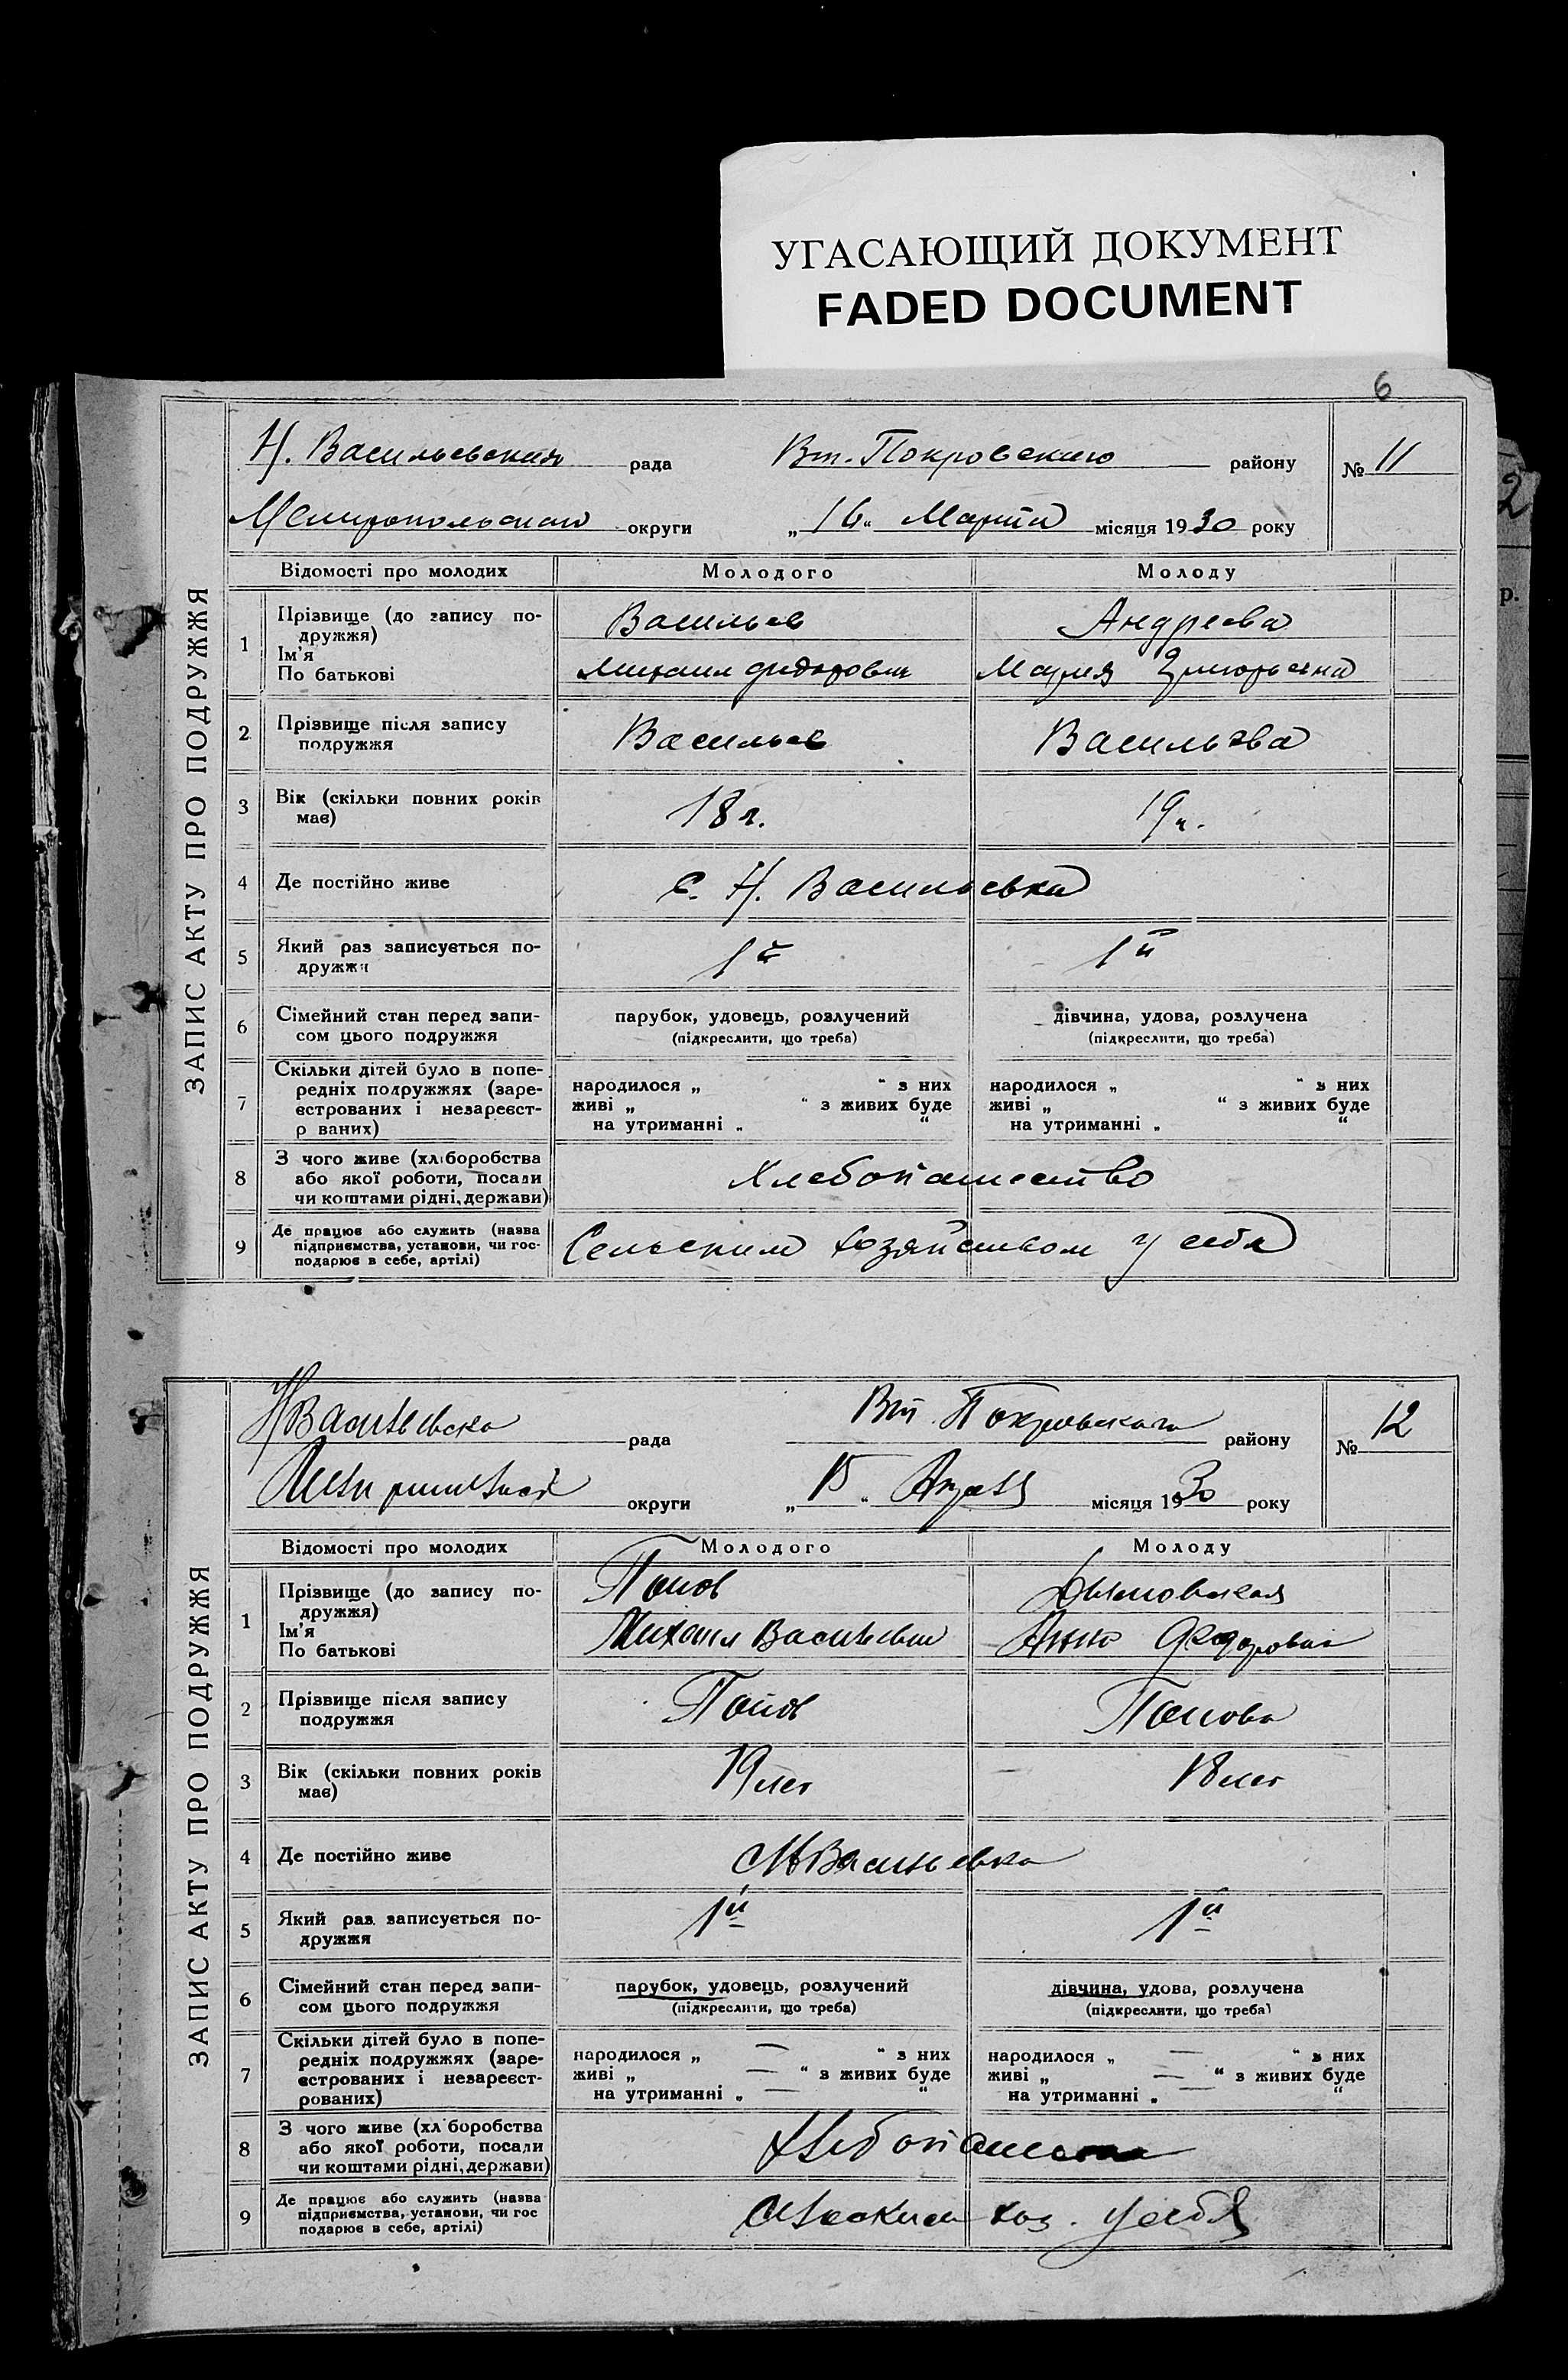 УГАСАЮЩИЙ ДОКУМЕНТ
FADED DOCUMENT
6
ЗАПИС АКТУ ПРО ПОДРУЖЖЯ
Н. Васильевская рада Вт. Покровского району № 11
Мелитопольской округи „16“ Марта місяця 1930 року
Відомості про молодих Молодого Молоду
1 Прізвище (до запису по-
дружжя) Васильев Андреева
Ім'я
По батькові Михаил Федорович Мария Григорьевна
2 Прізвище після запису
подружжя Васильев Васильева
3 Вік (скільки повних років
має) 18 л. 19 л.
4 Де постійно живе С. Н. Васильевка
5 Який раз записується по-
дружжя 1й 1й
6 Сімейний стан перед запи-
сом цього подружжя
парубок, удовець, розлучений дівчина, удова, розлучена
(підкреслити, що треба) (підкреслити, що треба)
7 Скільки дітей було в попе-
редніх подружжях (заре-
єстрованих і незареєст-
р ваних)
народилося „ “ з них народилося „ “ з них
живі „ “ з живих буде живі „ “ з живих буде
на утриманні „ “ на утриманні „ “
8 З чого живе (хліборобства
або якої роботи, посади
чи коштами рідні, держави) Хлебопашество
9 Де працює або служить (назва
підприємства, установи, чи гос-
подарює в себе, артілі) Сельским хозяйством у себя
ЗАПИС АКТУ ПРО ПОДРУЖЖЯ
Н Васильевска рада Вт. Покровского району № 12
округи „15“ Апреля місяця 1930 року
Відомості про молодих Молодого Молоду
1 Прізвище (до запису по-
дружжя) Попов
Ім'я
По батькові Михаил Васильевич Анна Федоровна
2 Прізвище після запису
подружжя Попов Попова
3 Вік (скільки повних років
має) 19 лет 18 лет
4 Де постійно живе С Н Васильевка
5 Який раз записується по-
дружжя 1й 1й
6 Сімейний стан перед запи-
сом цього подружжя
парубок, удовець, розлучений дівчина, удова, розлучена
(підкреслити, що треба) (підкреслити, що треба)
7 Скільки дітей було в попе-
редніх подружжях (заре-
єстрованих і незареєст-
рованих)
народилося „ — “ з них народилося „ — “ з них
живі „ — “ з живих буде живі „ — “ з живих буде
на утриманні „ — “ на утриманні „ — “
8 З чого живе (хл боробства
або якої роботи, посади
чи коштами рідні, держави) Хлебопашество
9 Де працює або служить (назва
підприємства, установи, чи гос
подарює в себе, артілі) сельским хоз. у себя
2
р.